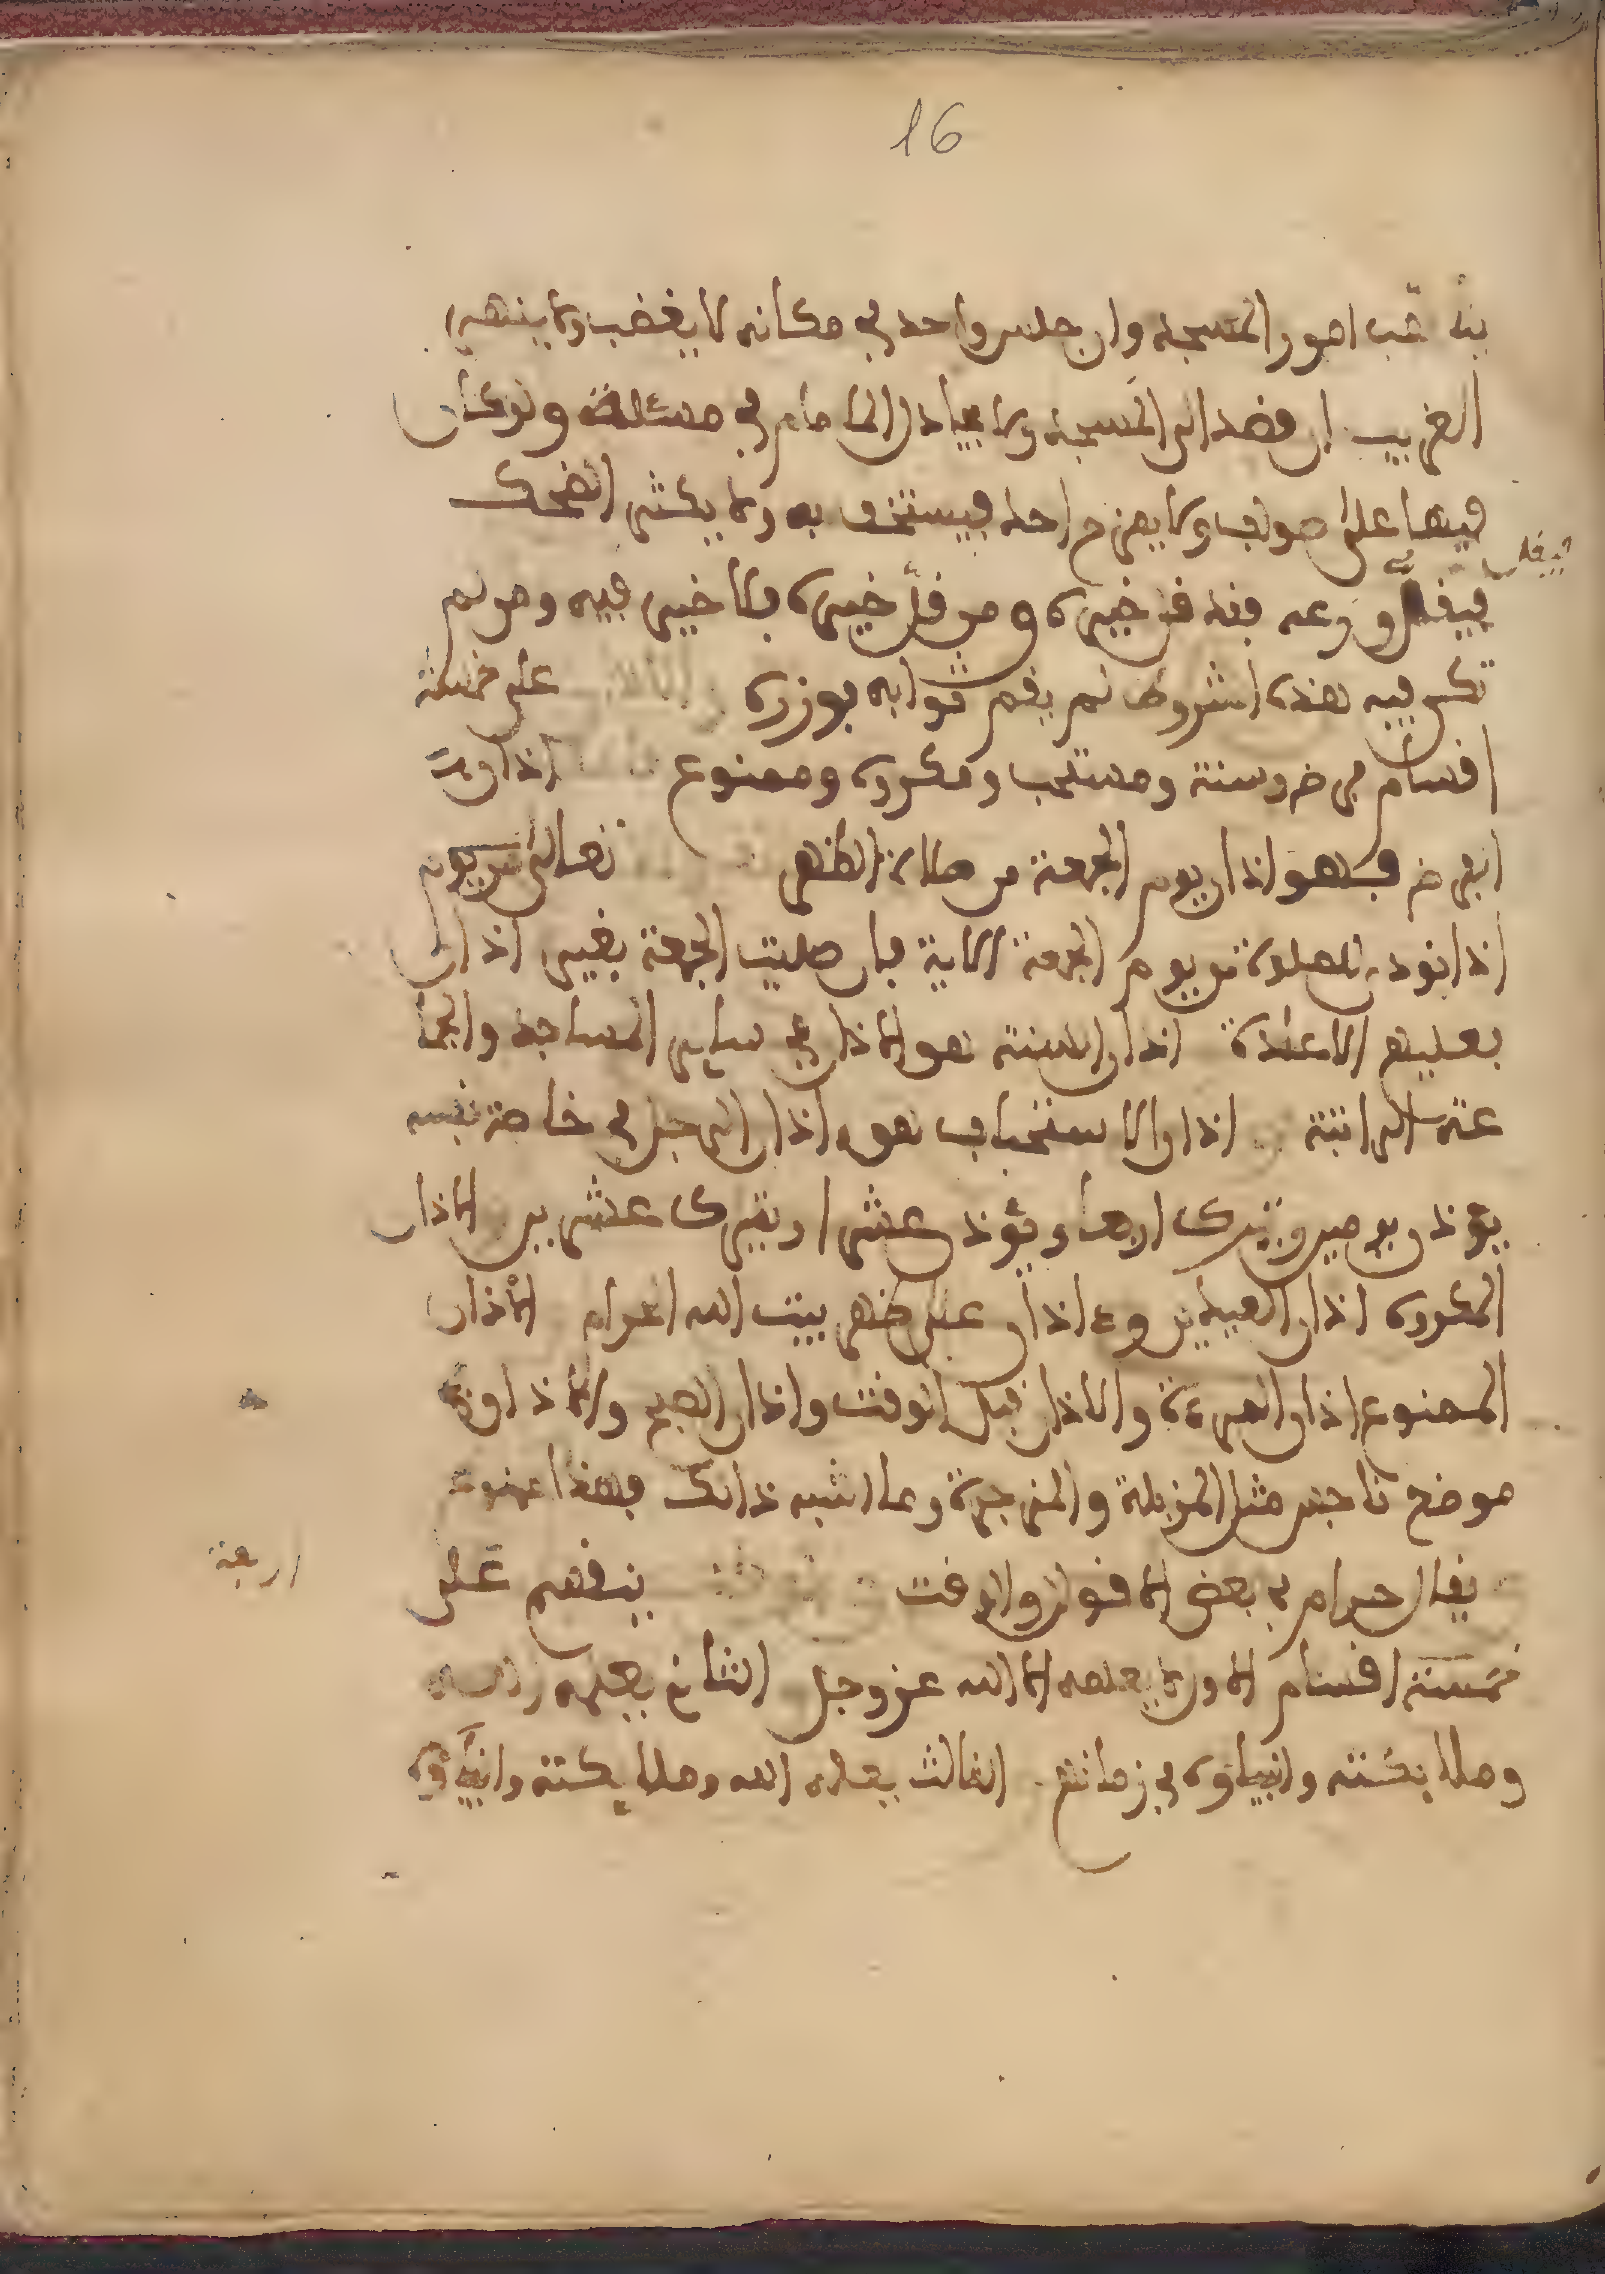 16
امور المسجد وان جلس واحد في مكانه لا يغضب ولا ينتهر
الغريب ان قصد الى المسجد ولا يجادل الامام في مسئلة ولو كان
فيها على صواب ولا يمزح احد فيستخف به ولا يكثر الضحك
فيقل
فيقل ورعه فقد قل خيره ومن قل خيره فلا خير فيه ومن لم
تكن فيه هذه الشروط لم يقم ثوابه بوزره على خمسة
اقسام فرض وسنة ومستحب ومكروه وممنوع اذان
الفرض فهو اذان يوم الجمعة من صلاة الظهر تعالى
اذا نودي للصلوة من يوم الجمعة الاية فان صليت الجمعة بغير اذان
فعليهم الاعادة اذان السنة هو الاذان في ساير المساجد والجما
عة الراتبة اذان الاستحباب هو اذان الرجل في خاصة نفسه
يؤذن يومين ويترك اربعا ويؤذن عشرا ويترك عشرين الاذان
المكروه اذان العيدين و اذان على ظهر بيت الله الحرام الاذان
الممنوع اذان المرءة والاذان قبل الوقت واذان الصبح والاذان
موضع ناجس مثل المزبلة والمزجرة وما اشبه ذالك فهذا
يقال حرام في بعض الاقوال والوقت ينقسم على
اربعة
خمسة اقسام الاول يعلمه الا الله عز وجل الثاني يعلمه الله
وملايكته وانبياؤه في زمانهم الثالث يعلمه الله وملايكته وانبياؤه